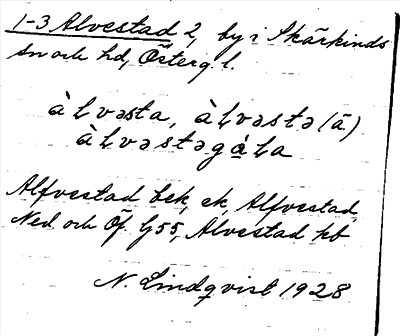 1-3 Alvestad 2, by i Skärkinds
sn och hd, Österg. l.
àLvəsta, àLvəstə (ä)
àLvəstəgạ̀La
Alfvestad bek, ek, Alfvestad,
Ned. och Öf. G55, Alvestad kb
N. Lindqvist 1928